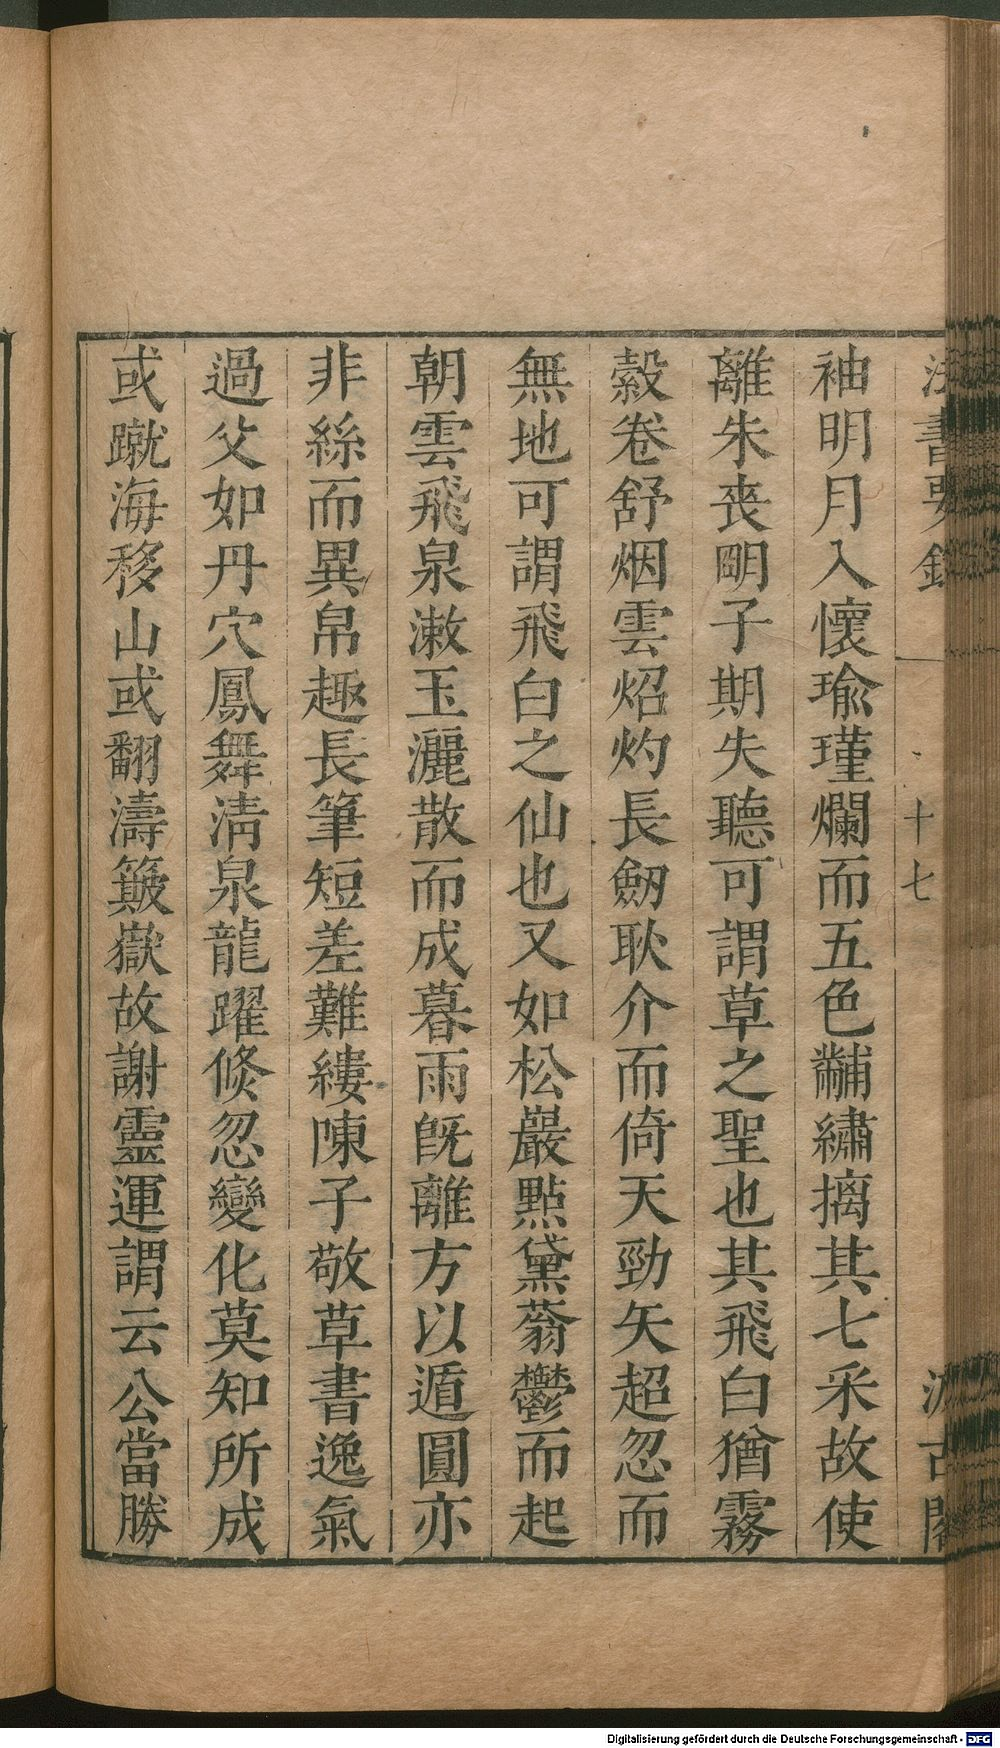 法書要錄
十七
汲古閣
袖明月入懷瑜瑾爛而五色黼繡摛其七采故使
離朱喪明子期失聽可謂草之聖也其飛白猶霧
縠卷舒烟雲炤灼長劒耿介而倚天勁矢超忽而
無地可謂飛白之仙也又如松巖點黛蓊鬱而起
朝雲飛泉漱玉灑散而成暮雨旣離方以遁圓亦
非絲而異帛趣長筆短差難縷陳子敬草書逸氣
過父如丹穴鳳舞淸泉龍躍倏忽變化莫知所成
或蹴海移山或翻濤簸嶽故謝靈運謂云公當勝
Digitalisierung gefördert durch die Deutsche Forschungsgemeinschaft - DFG